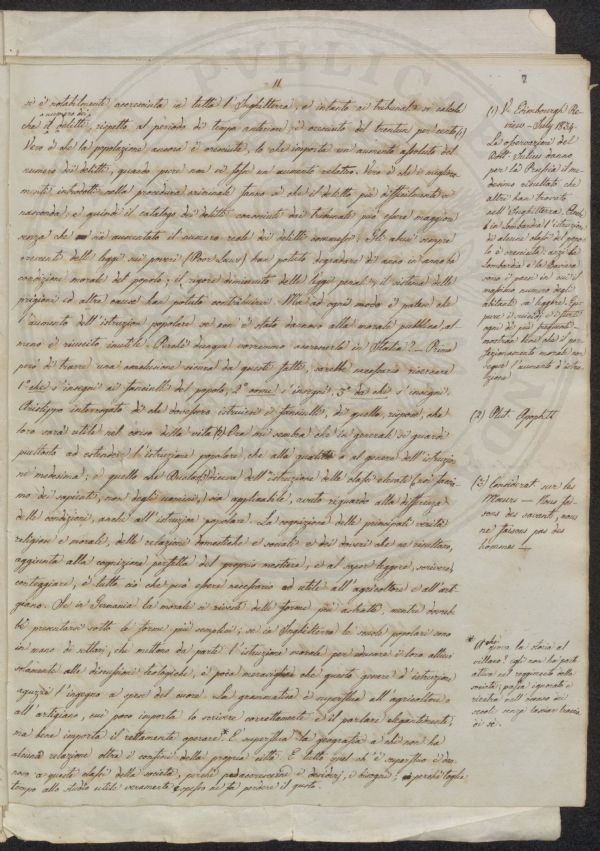 11
7
si è notabilmente accresciuta in tutta l'Inghilterra, e intanto ai tribunali si calcola
che il numero dei delitti, rispetto al periodo di tempo anteriore, è cresciuto del trentuno per cento (1)
Vero è che la popolazione ancora è cresciuta, lo che importa un aumento assoluto del
numero dei delitti, quando pure non vi fosse un aumento relativo. Vero è che i migliora-
menti introdotti nella procedura criminale fanno sì che il delitto più difficilmente si
nasconda, e quindi il catalogo dei delitti conosciuti dai tribunali può essere maggiore
senza che sia aumentato il numero reale dei delitti commessi. Gli abusi sempre
crescenti delle leggi sui poveri (Poor Laws) han potuto degradare di anno in anno la
condizione morale del popolo; il rigore diminuito delle leggi penali, il sistema delle
prigioni ed altre cause han potuto contribuirvi. Ma ad ogni modo è palese che
l'aumento dell'istruzione popolare se non è stato dannoso alla morale pubblica, al-
meno è riuscito inutile. Perchè dunque vorremmo accrescerla in Italia? — Prima
però di trarre una conclusione sicura da questi fatti, sarebbe necessario ricercare
1° che s'insegni ai fanciulli del popolo, 2° come s'insegni, 3° da chi s'insegni.
Aristippo interrogato di che dovessero istruirsi i fanciulli, di quello rispose, che
loro sarà utile nel corso della vita (2) Ora mi sembra che in generale si guardi
piuttosto ad estendere l'istruzione popolare, che alla qualità e al genere dell'istruzio-
ne medesima; e quello che Duclos (3) diceva dell'istruzione delle classi elevate (noi faccia-
mo dei sapienti, non degli uomini), sia applicabile, avuto riguardo alla differenza
delle condizioni, anche all'istruzione popolare. La cognizione delle principali verità
religiose e morali, delle relazioni domestiche e sociali e dei doveri che ne risultano,
aggiunta alla cognizione perfetta del proprio mestiere, e al saper leggere, scrivere,
conteggiare, è tutto ciò che può essere necessario ed utile all'agricoltore e all'arti-
giano. Se in Germania la morale si rivesti delle forme più astratte, mentre dovreb-
be presentarsi sotto le forme più semplici; se in Inghilterra le scuole popolari sono
in mano di settari, che mettono da parte l'istruzione morale per educare i loro allievi
solamente alle discussioni teologiche, è poca maraviglia che questo genere d'istruzione
aguzzi l'ingegno a spese del cuore. La grammatica è superflua all'agricoltore e
all'artigiano, cui poco importa lo scrivere correttamente e il parlare elegantemente,
ma bene importa il rettamente operare.* È superflua la geografia a chi non ha
alcuna relazione oltre i confini della propria città. E tutto quel che è superfluo è dan-
noso a queste classi della società, perchè può accrescerne i desiderj, e i bisogni; e perchè toglie
tempo allo studio utile veramente e spesso ne fa perdere il gusto.
(1) V. Edimbourgh Re-
view — July 1834.
Le osservazioni del
Dott. Julius danno
per la Prussia il me-
desimo risultato che
altri han trovato
nell'Inghilterra.
in Lombardia l'istruzione
di alcune classi del popo-
lo è cresciuta: anzi la
Lombardia e la Baviera
sono i paesi in cui il
massimo numero degli
abitanti sa leggere. Ep-
pure i suicidj e i furti
ogni dì più frequenti
mostran bene che il per-
fezionamento morale non
segue l'aumento d'istru-
zione
(2) Plut. Apophtt.
(3) Considérat. sur les
Mœurs — Nous fai-
sons des savants, nous
ne faisons pas des
hommes —
* A che giova la storia al
villano? egli non ha parte
attiva nel reggimento della
società; passa ignorato e
rientra nell'urna dei
secoli senza lasciar traccia
di sè.